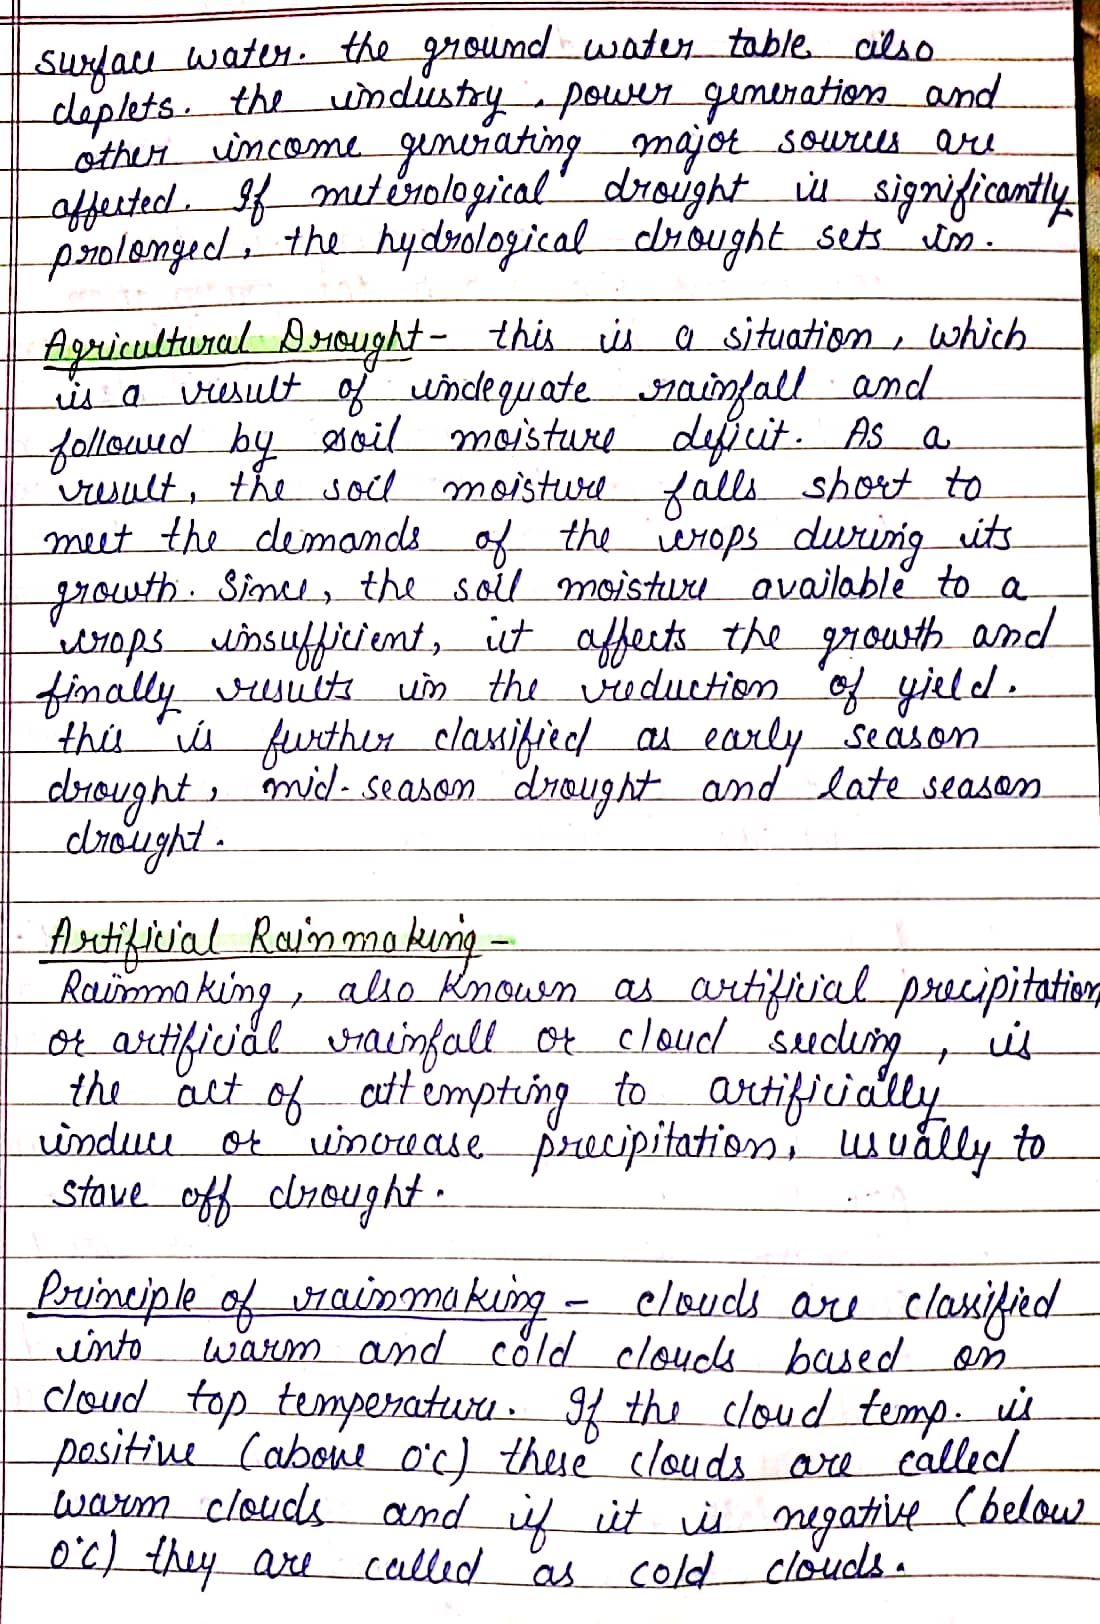 surface water. the ground water table also
deplets. the industry, power generation and
other income generating major sources are
affected. If meterological drought is significantly
prolonged, the hydrological drought sets in.
Agricultural Drought - this is a situation, which
is a result of indequate rainfall and
followed by soil moisture deficit. As a
result, the soil moisture falls short to
meet the demands of the crops during its
growth. Since, the soil moisture available to a
crops insufficient, it affects the growth and
finally results in the reduction of yield.
this is further classified as early season
drought, mid-season drought and late season
drought.
Artificial Rainmaking -
Rainmaking, also known as artificial precipitation
or artificial rainfall or cloud seeding, is
the act of attempting to artificially
induce or increase precipitation, usually to
stave off drought.
Principle of rainmaking - clouds are classified
into warm and cold clouds based on
cloud top temperature. If the cloud temp. is
positive (above 0°C) these clouds are called
warm clouds and if it is negative (below
0°C) they are called as cold clouds.